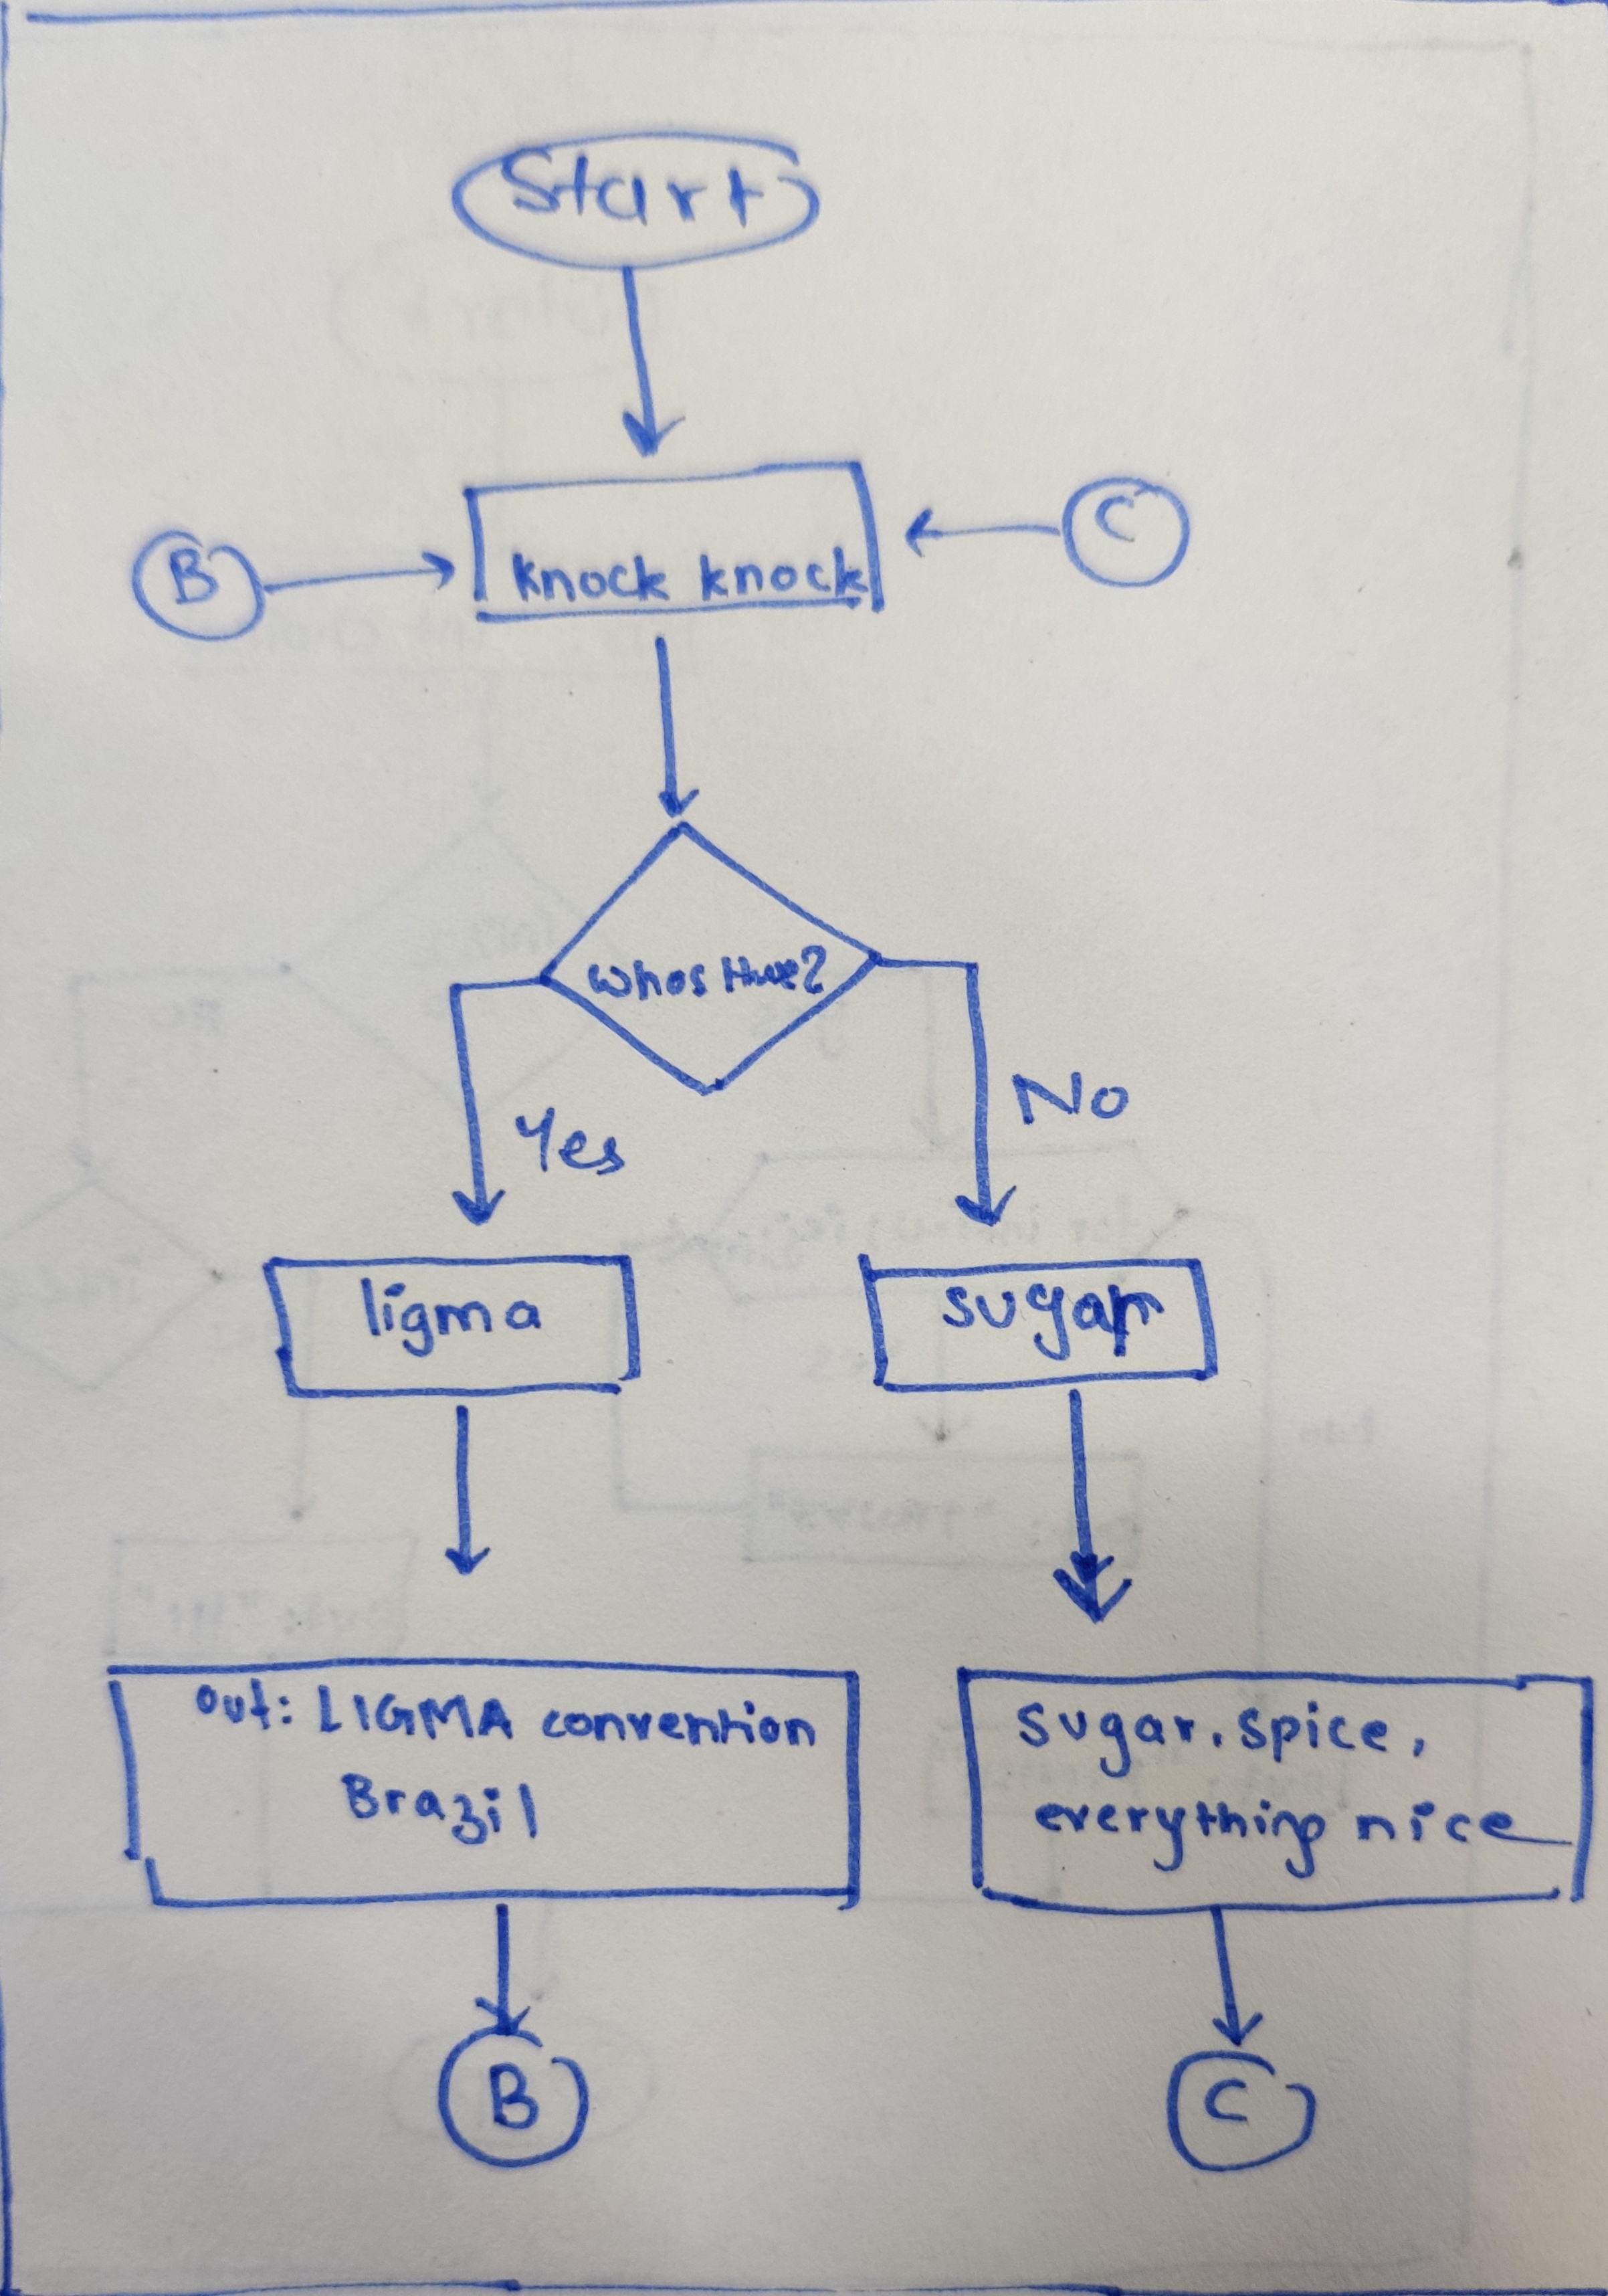 Start
B
knock knock
C
Whos there?
Yes
No
ligma
sugar
out: LIGMA convention
Brazil
sugar, spice,
everything nice
B
C